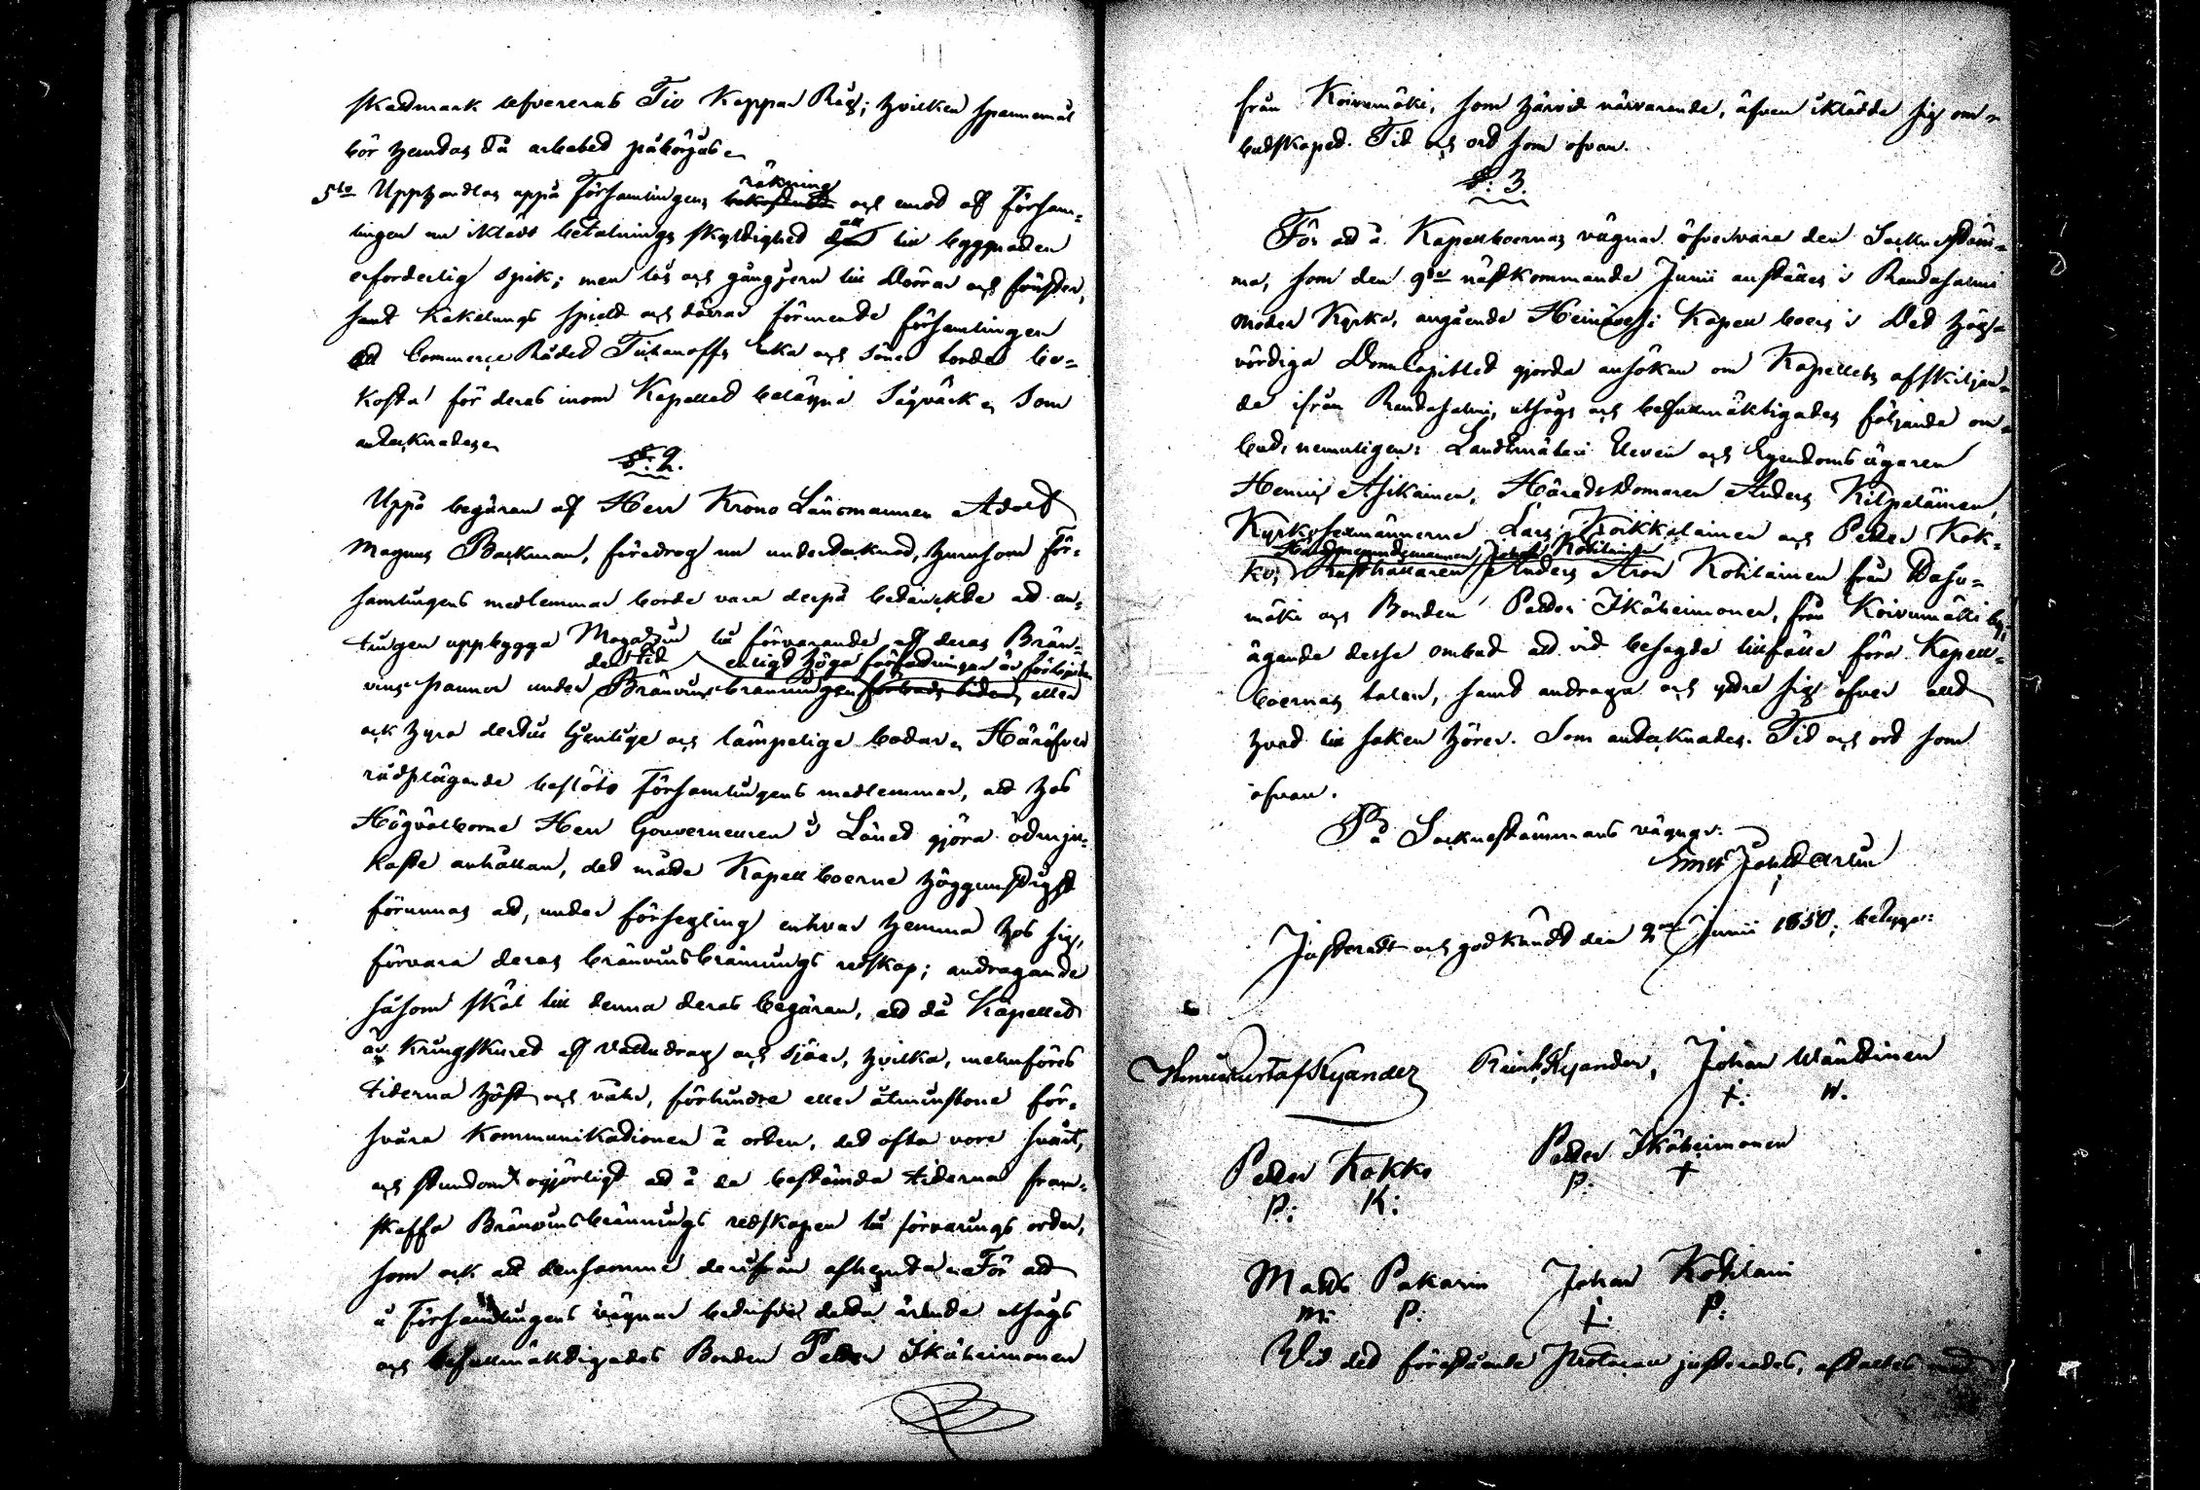 skattmark lefvereras Tio Kappar Råg; hvilken spannemål
bör hemtas då arbetet påbörjas.
5to Upphandlas uppå Församlingens räkning och emot af Försam-
lingen nu iklädt betalnings skyldighet all till byggnaden
erforderlig spik; men lås och gångjern till Dörrar och fönster,
samt Kakelungs spield och dörrar förmente församlingen
att Commerce Rådet Tichanoffs Enka och söner torde be-
kosta för deras inom Kapellet belägna Sågvärk. Som
antecknades.
§: 2.
Uppå begäran af Herr Krono Länsmannen Adolf
Magnus Backman, föredrog un undertecknad, huruhom för-
samlingens medlemmar borde vara derpå betänckte att an-
tingen uppbygga Magazin till förvarande af deras Brän-
den tid enligt höga författningar är förbjuden
vins pannor under Bränvinsbränningen förbuds tiden, eller
ock hyra dertill tjenlige och lämpelige bodar. Häröfver
rådplägande beslöto Församlingens medlemmar, att hos
Högvälborne Herr Gouverneuren i Länet gjöra ödmju-
kaste anhållan, det måtte Kapellboerne höggunstigst
förunnas att, under försegling enhvar hemma hos sig,
förvara deras bränvinsbrännings redskap; andragande
såsom skäl till denna deras begäran, att då Kapellet
är kringskuret af vattudrag och sjöar, hvilka, menföres
tiderna höst och vår, förhindra eller åtminstone för-
svåra Kommunikationen å orten, det ofta vore svårt,
och stundom ogjörligt att å de bestämda tiderna fram-
skaffa Bränvinsbrännings redskapen till förvarings orten,
som ock att densamma derifrån afhemta. För att
å Församlingens vägnar bedrifva detta ärende uthsågs
och befullmäktigades Bonden Petter Ikäheimonen
från Koivumäki, som härvid närvarande, äfven iklädde sig om-
budskapet. Tid och ort som ofvan.
§: 3.
För att å Kapellboernas vägnar öfvervara den Sockenstäm-
ma, som den 9de nästkommande Junii anställes i Randasalmi
moder Kyrka, angående Heinävesi Kapell boers i Det Högh
vördiga Domkapitlet gjorda ansökan om Kapellets afskiljan-
de ifrån Randasalmi, uthsågs och befullmäktigades följande om-
bud, nemligen: Landtmäteri Eleven och Egendoms ägaren
Henric Asikainen, Häradsdomaren Anders Kilpeläinen,
Kyrkosexmännerne Lars Kroikkalainen och Petter Kok-
ko, Rusthållaren Anders Aron Kohilainen från Pasu-
mäki och Bonden Petter Ikäheimonen, från Koivumäki by,
ägande desse ombud att vid besagde tillfälle föra Kapell-
boernas talan, samt andraga och yttra sig öfver allt
hvad till saken hörer. Som antecknades. Tid och ort som
ofvan.
På Sockenstämmans vägnar:
Justeradt och godkändt den 2dra Junii 1850, betyga:
Henric Gustaf Kyander Reinh. Kyander, Johan Wänttinen
+: W.
Petter Kokko Petter Ikäheimonen
P: K: P: +
Matts Pakarin Johan Kohilain
M: P: +: P:
Vid det förestående Protocoll justerades, aftaltes